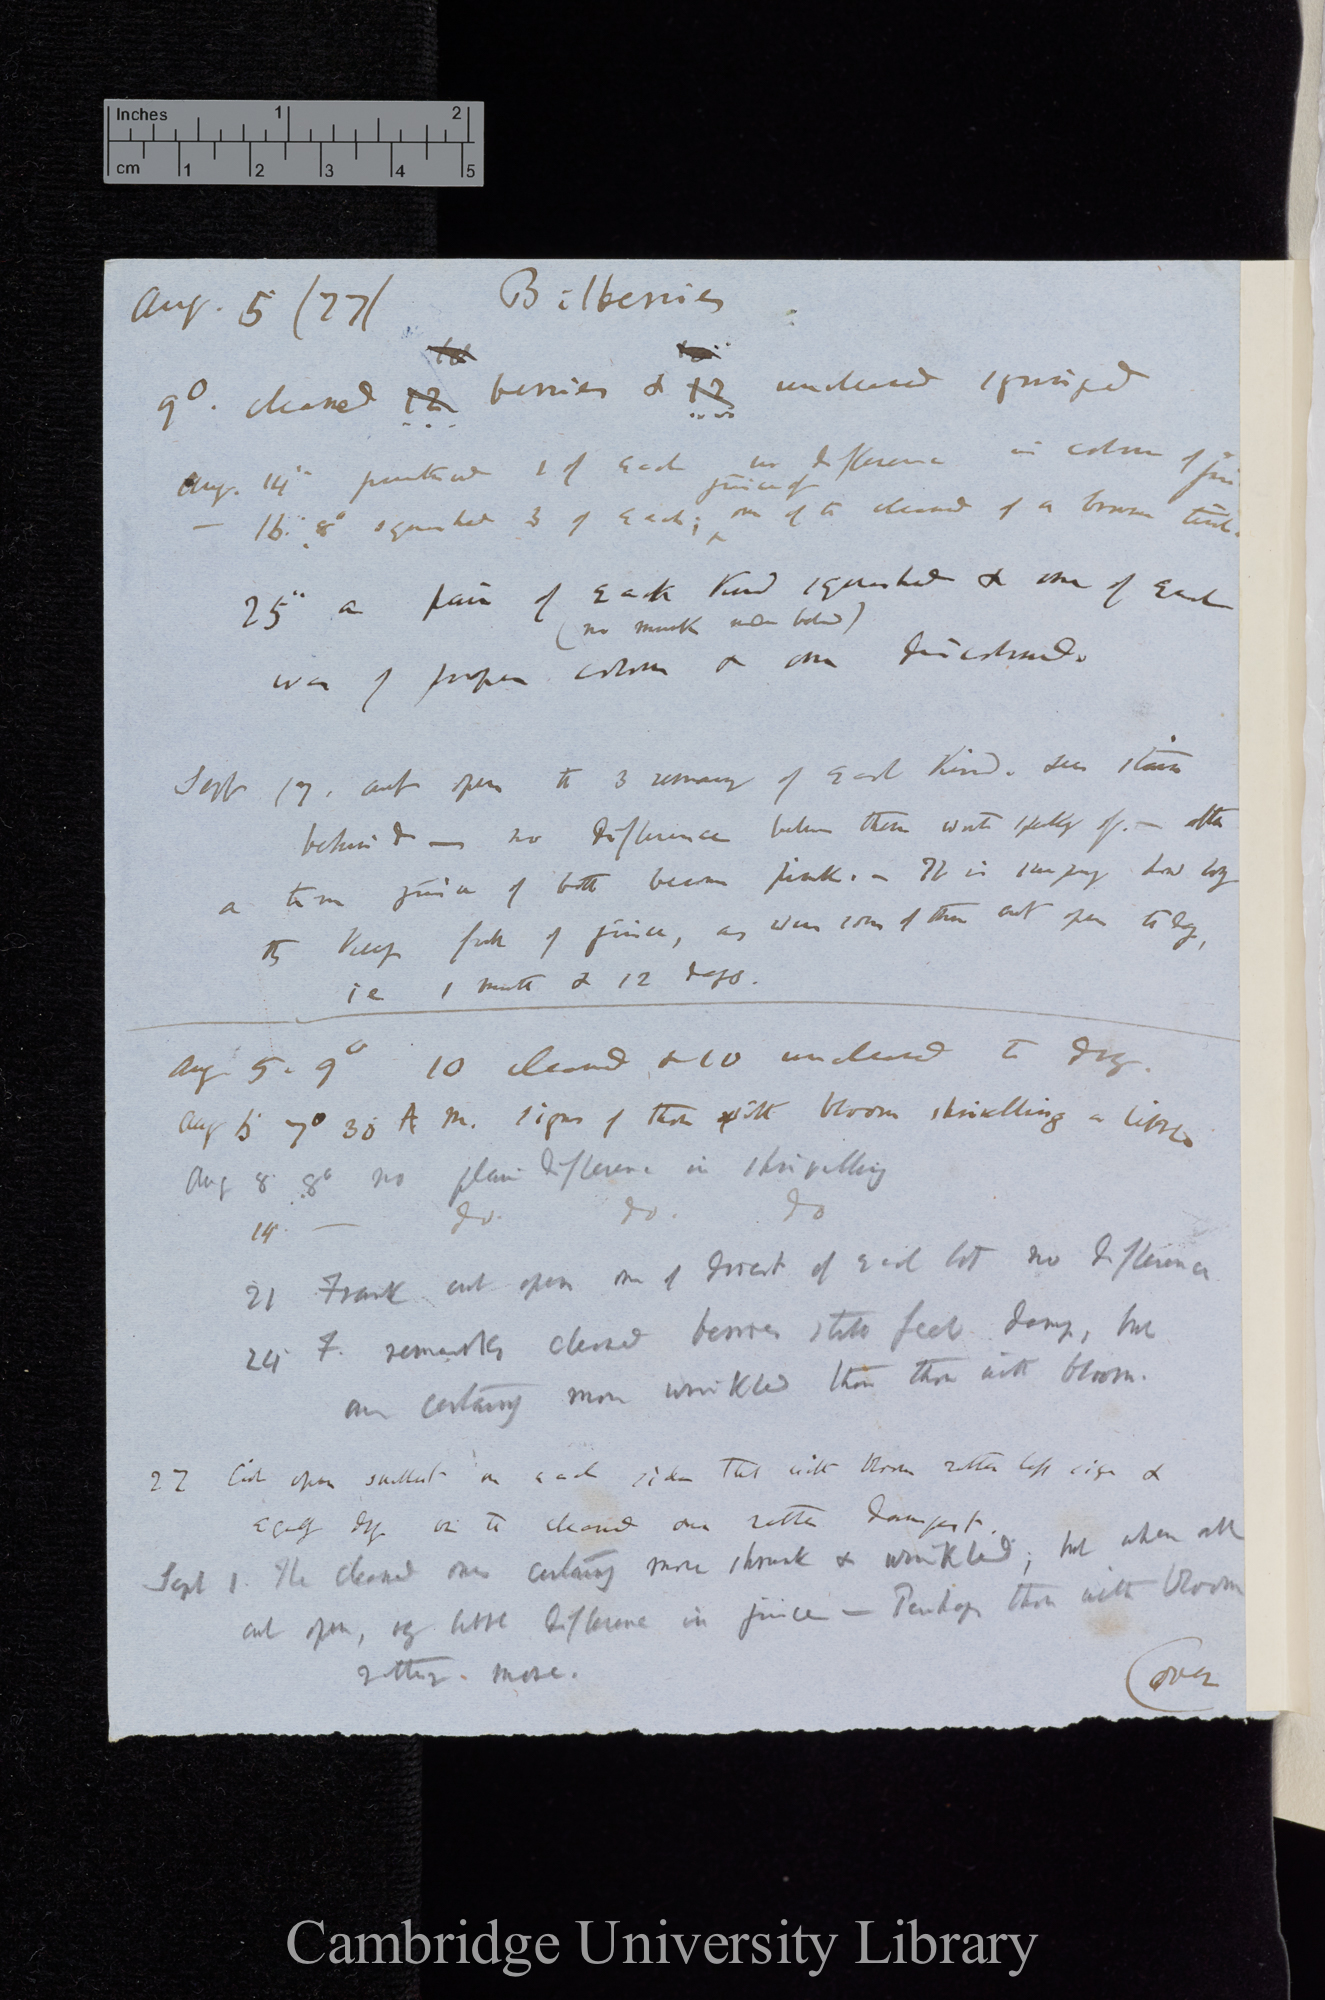 Inches 1 2
cm 1 2 3 4 5
Aug. 5 (77( Bilberries
9°. cleaned 12 berries & 12 uncleaned syringed
Aug. 14 punctured 1 of each no difference in colour of
juice of
— 16. 8° squashed 3 of each; one of the cleaned of a brown tint.
25" a pair of each kind squashed & one of each
(no mark
was of proper colour & one discoloured.
Sept 17. cut open the 3 remaining of each kind. see stain
behind — no difference between them worth speaking of. — after
a time juice of both become pink. — It is surprising how long
they keep full of juice, as were some of them cut open today,
i e 1 month & 12 days.
Aug 5. 9° 10 cleaned & 10 uncleaned to dry.
Aug 6 7° 30 A M. signs of those with bloom shrivelling a little
Aug 8 8° no plain difference in shrivelling
14 — do. do. do
21 Frank cut open one of driest of each lot no difference
24 F. remarks cleaned berries still feel damp, but
are certainly more wrinkled than those with bloom.
27 Cut open smallest on each side. That with bloom rather less size &
equally dry on the cleaned one rather dampest.
Sept 1. The cleaned ones certainly more shrunk & wrinkled; but when all
cut open, very little difference in juice — Perhaps those with bloom
rather more.
(over
Cambridge University Library